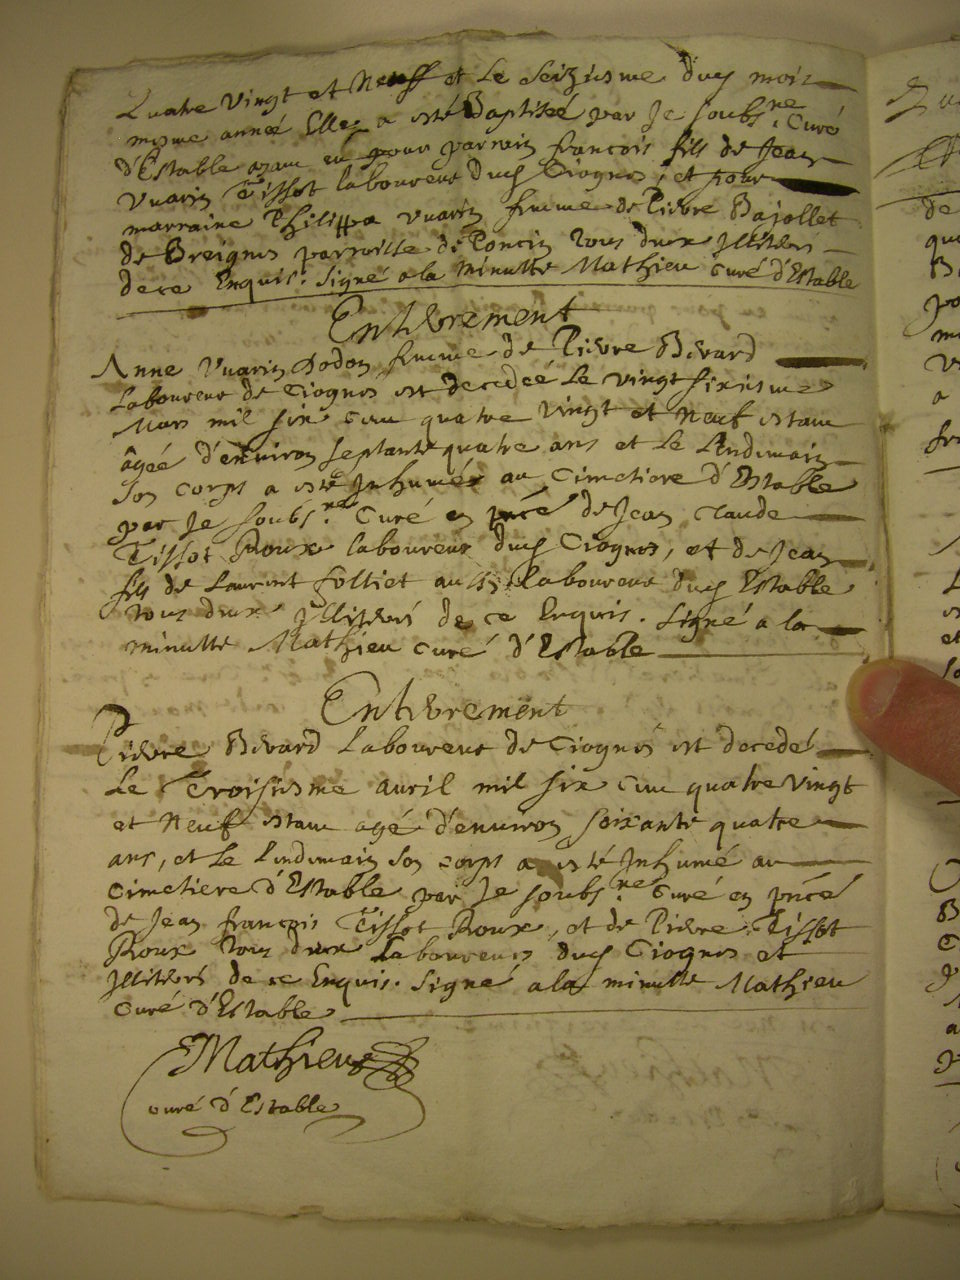 Quatre vingt et Neuff et Le Seiziesme duy mois
mesme année Elle a esté Baptiseé par Je soubs.ne Curé
d'Estable ayam eu pour parrein françois fils de Jean
Vuarin Tissot laboureur duy Ciognes, et pour
marraine Philippa Vuarin femme de Pierre Bajollet
de Breignes parroisse de Poncin Tous deux Jlliterés
de ce Enquis. Signé a la minutte Mathieu Curé d'Estable
Enterement
Anne Vuarin Dodon femme de Pierre Berard
Laboureur de Ciognes est decedeé Le vingt sixiesme
Mars mil six Cens quatre vingt et Neuf estam
âgeé d'environ septante quatre ans et Le Lendemain
son corps a esté Jnhumé au Cimetiere d'Estable
par Je soubs.ne Curé en pnce de Jean claude
Tissot Roux laboureur duy Ciognes, et de Jean
fils de Laurent folliet aussy laboureur duy Estable
tous deux Jlliterés de ce Enquis. Signé a la
minutte Mathieu curé d'Estable
Enterement
Pierre Berard Laboureur de Ciognes est decedé
Le Troisiesme auril mil six Cens quatre vingt
et Neuf estam agé d'enuiron soixante quatre
ans, et Le Lendemain son corps a esté Jnhumé au
Cimetiere d'Estable par Je soubs.ne Curé en pnce
de Jean françois Tissot Roux, et de Pierre Tissot
Roux tous deux Laboureurs duy Ciognes et
Jlliterés de ce Enquis. Signé a la minutte Mathieu
Curé d'Estable
Mathieu
curé d'Estable